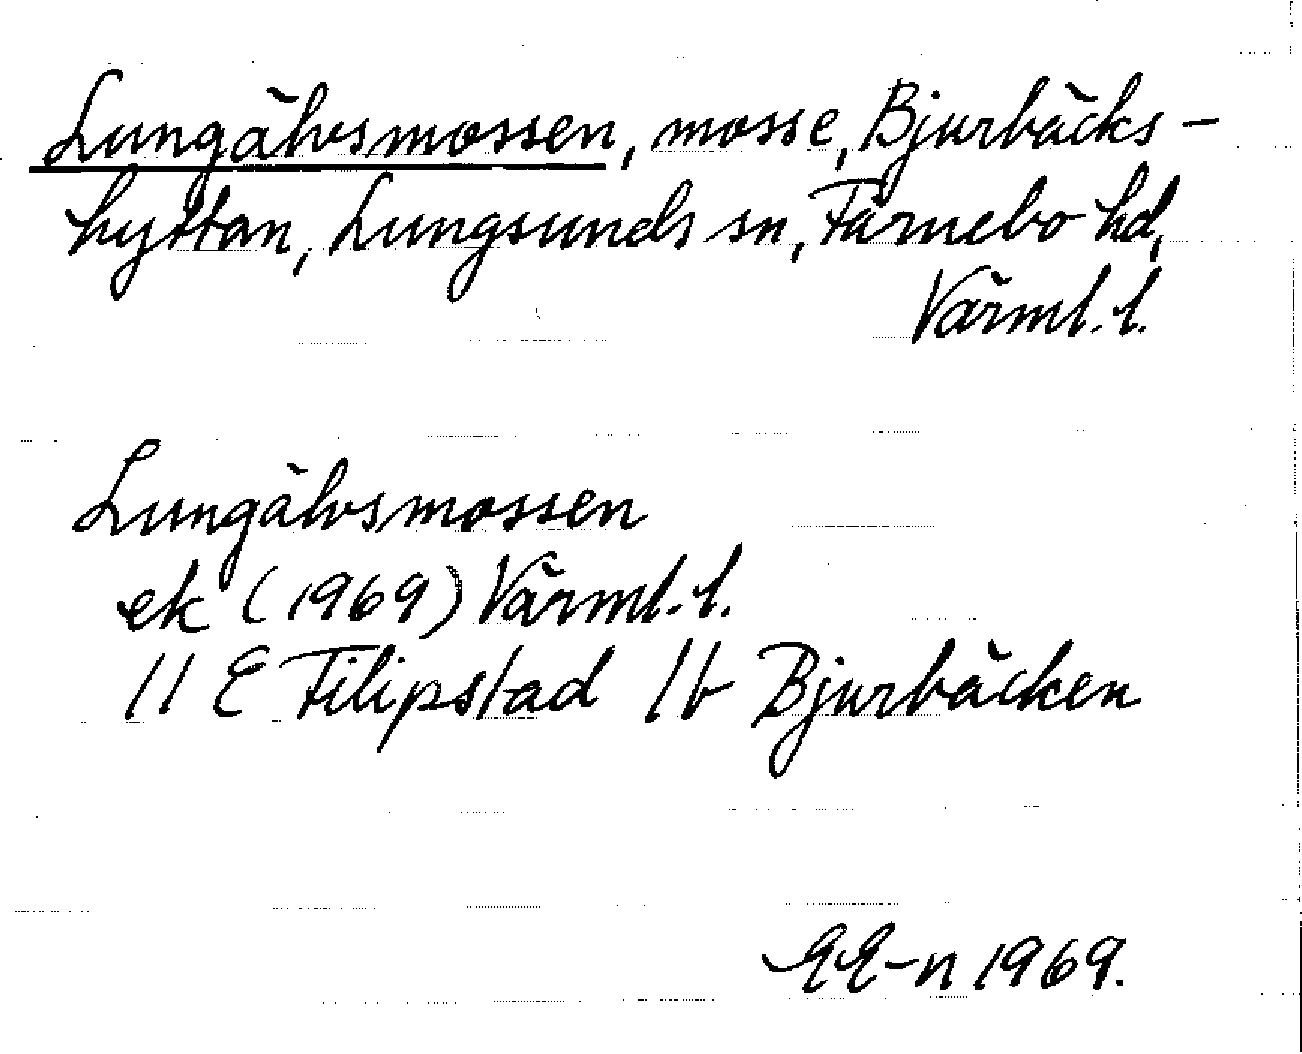 Lungälvsmossen, mosse, Bjurbäcks-
hyttan, Lungsunds sn, Färnebo hd,
Värml. l.
Lungälvsmossen
ek (1969) Värml. l.
11 E Filipstad 1b Bjurbäcken
EE-n 1969.